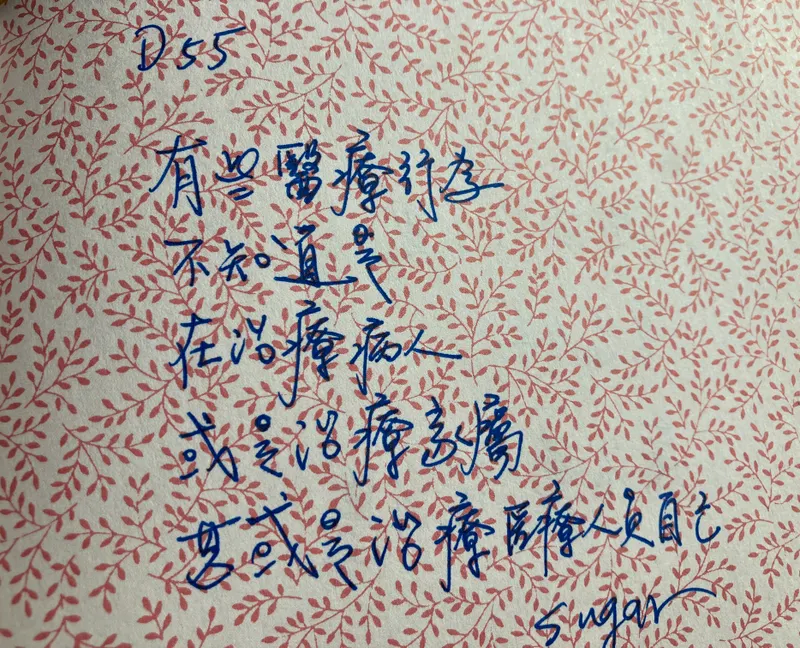 D55
有些醫療行為
不知道是
在治療病人
或是治療家屬
甚或是治療医療人員自己
sugar